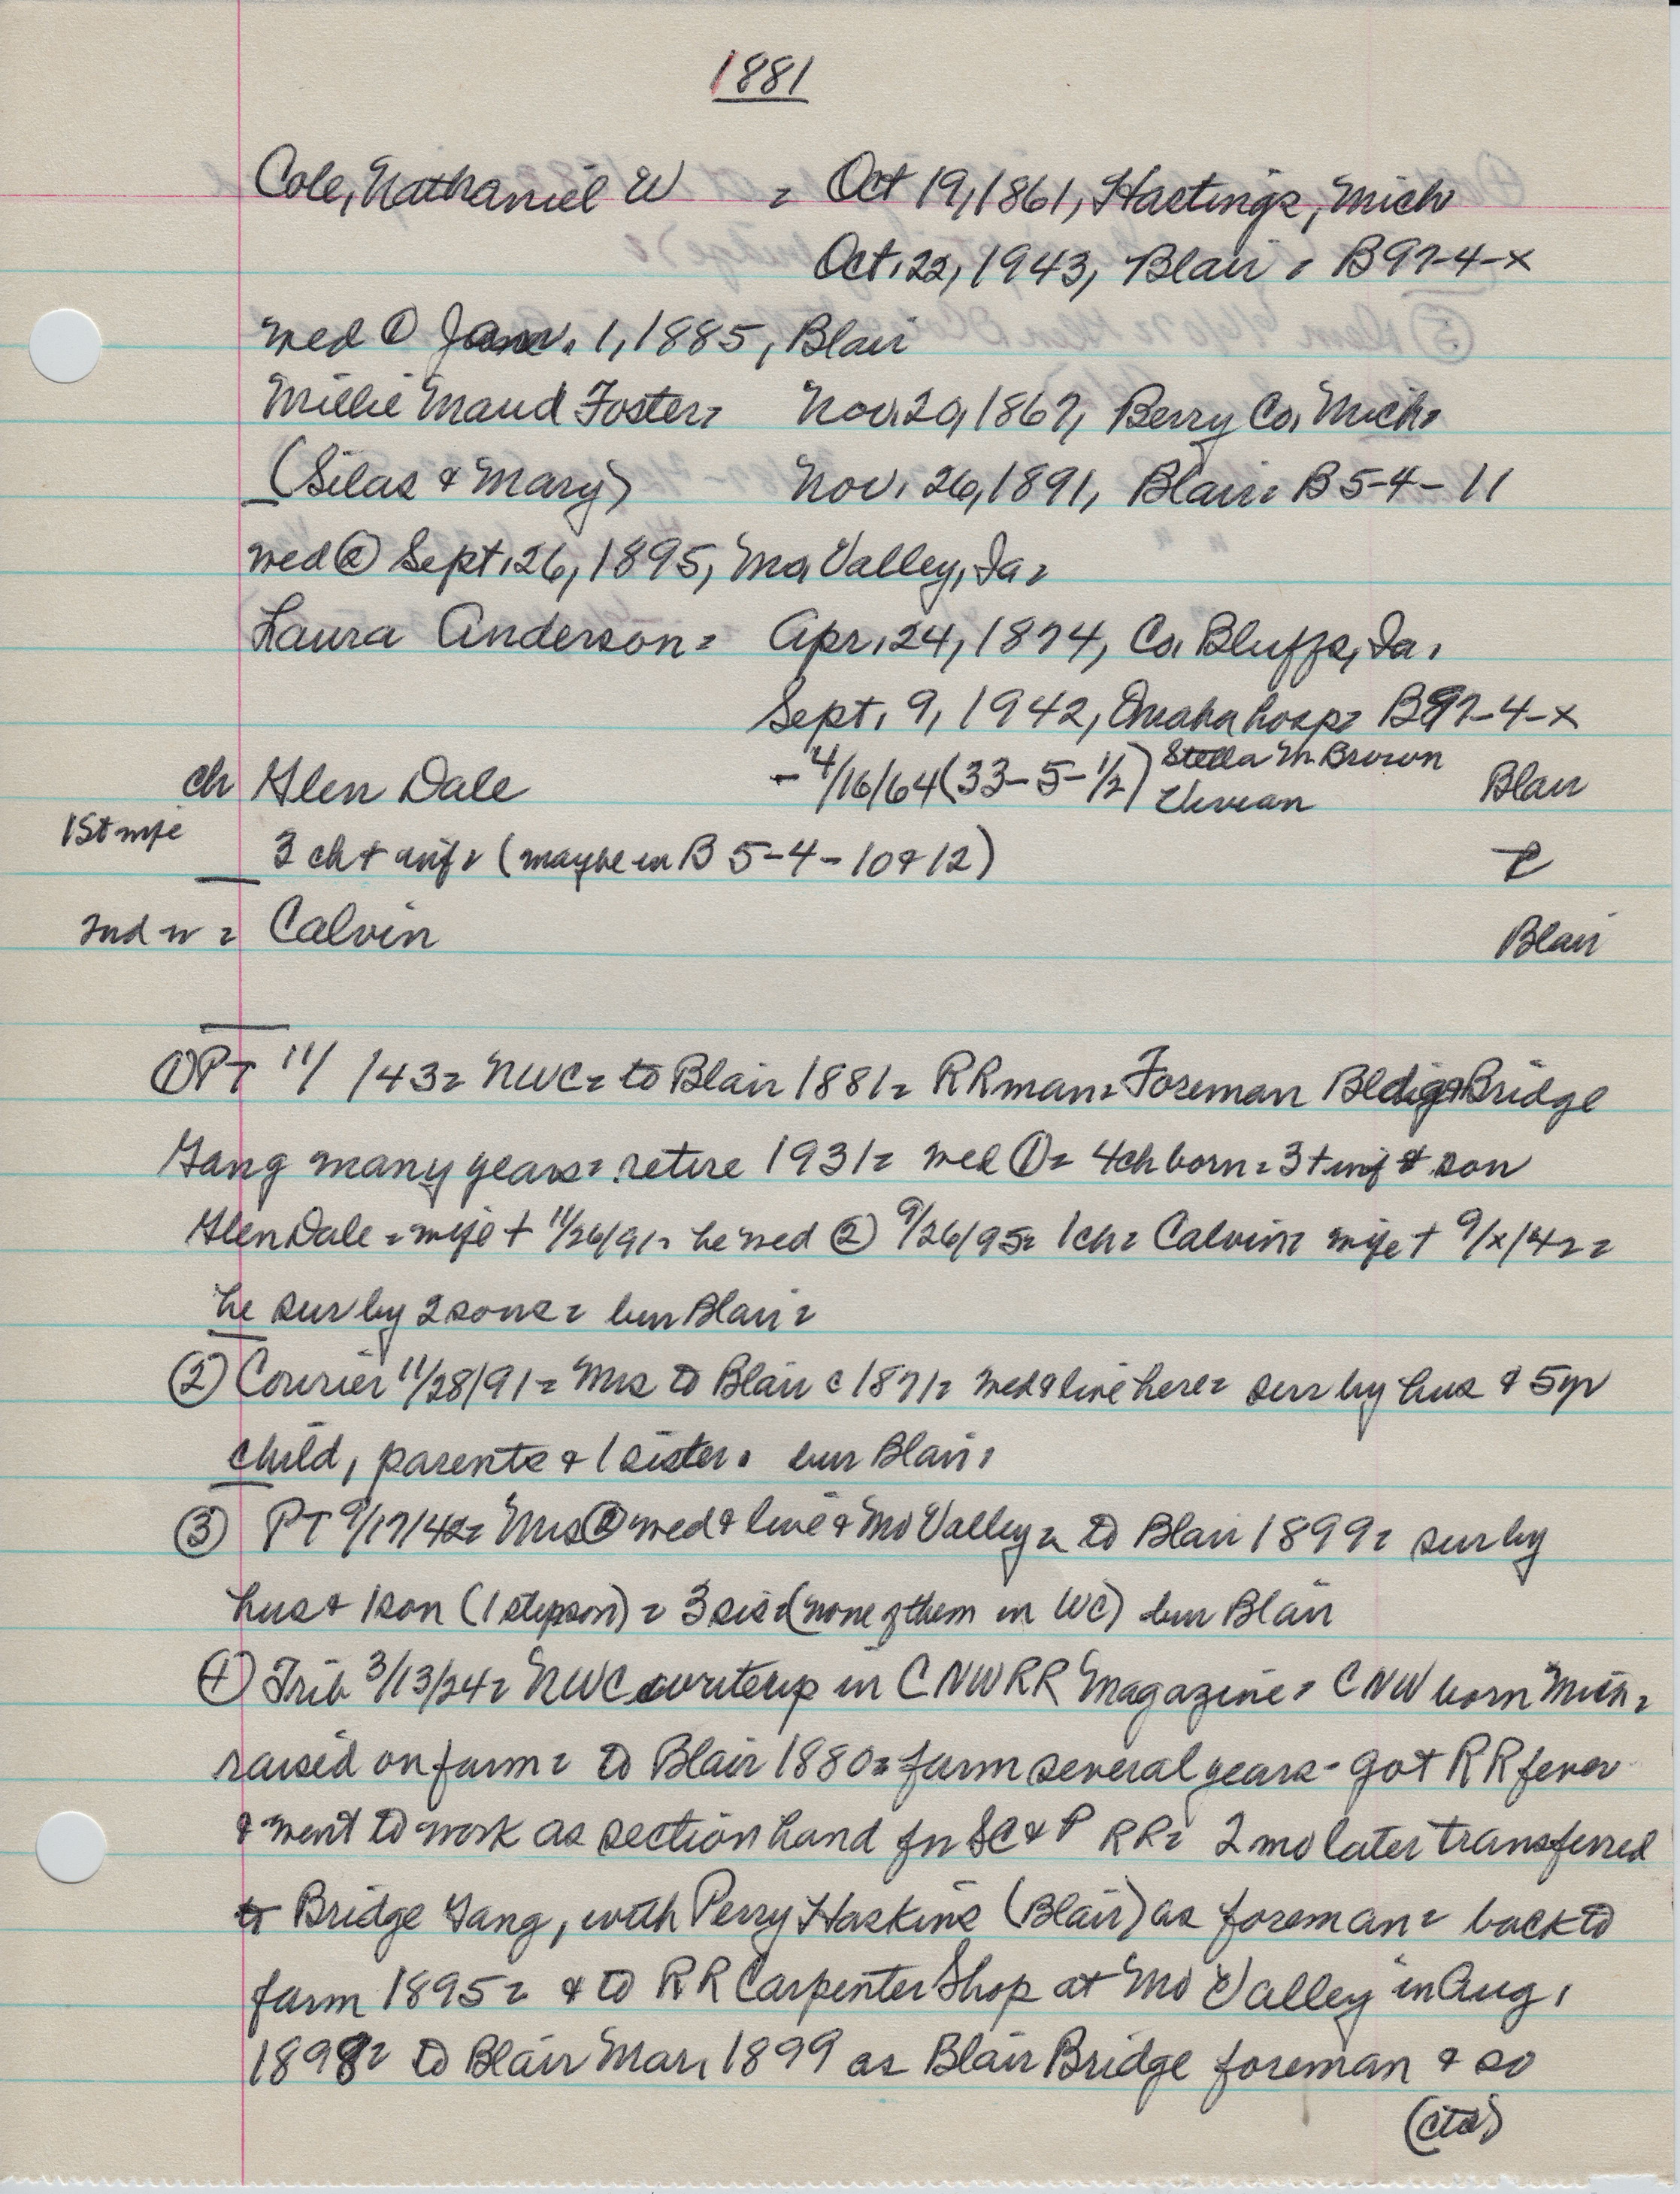 1881
Cole, Nathaniel W = Oct 19, 1861, Hastings, Mich
Oct. 22, 1943, Blair = B97-4-x
wed ① Jan. 1, 1885, Blair
Millie Maud Foster= Nov. 20, 1867, Berry Co, Mich=
(Silas & Mary) Nov. 26, 1891, Blair= B 5-4-11
wed ② Sept. 26, 1895, Mo Valley, Ia=
Laura Anderson= Apr. 24, 1874, Co. Bluffs, Ia.
Sept. 9, 1942, Omaha hosp= B97-4-x
ch Glen Dale - 4/16/64 (33-5-1/2) Stella M. Brown Blair
1st wife
3 ch + inf = (maybe in B 5-4-10 & 12)
2nd w = Calvin Blair
① PT 11/ /43= NWC= to Blair 1881= RR man= Foreman Bldig & Bridge
Gang many years= retire 1931= wed ①= 4ch born= 3 + inf & son
Glen Dale = wife + 11/26/91= he wed ② 9/26/95= 1ch= Calvin= wife + 9/x/42=
he sur by 2 sons= bur Blair=
② Courier 11/28/91= Mrs to Blair c 1871= wed & live here= sur by hus & 5yr
child, parents & 1 sister. bur Blair.
③ PT 9/17/42= Mrs ② wed & live & Mo Valley= to Blair 1899= sur by
hus & 1 son (1 stepson) = 3 sis= (none of them in WC) bur Blair
④ Trib 3/13/24= NWC writeup in CNWRR Magazine= CNW born Mich=
raised on farm= to Blair 1880= farm several years- got RR fever
& went to work as section hand for SC & P RR= 2 mo later transferred
to Bridge Gang, with Perry Haskins (Blair) as foreman= back to
farm 1895= & to RR Carpenter Shop at Mo Valley in Aug,
1898= to Blair Mar, 1899 as Blair Bridge foreman & so
(ctd)